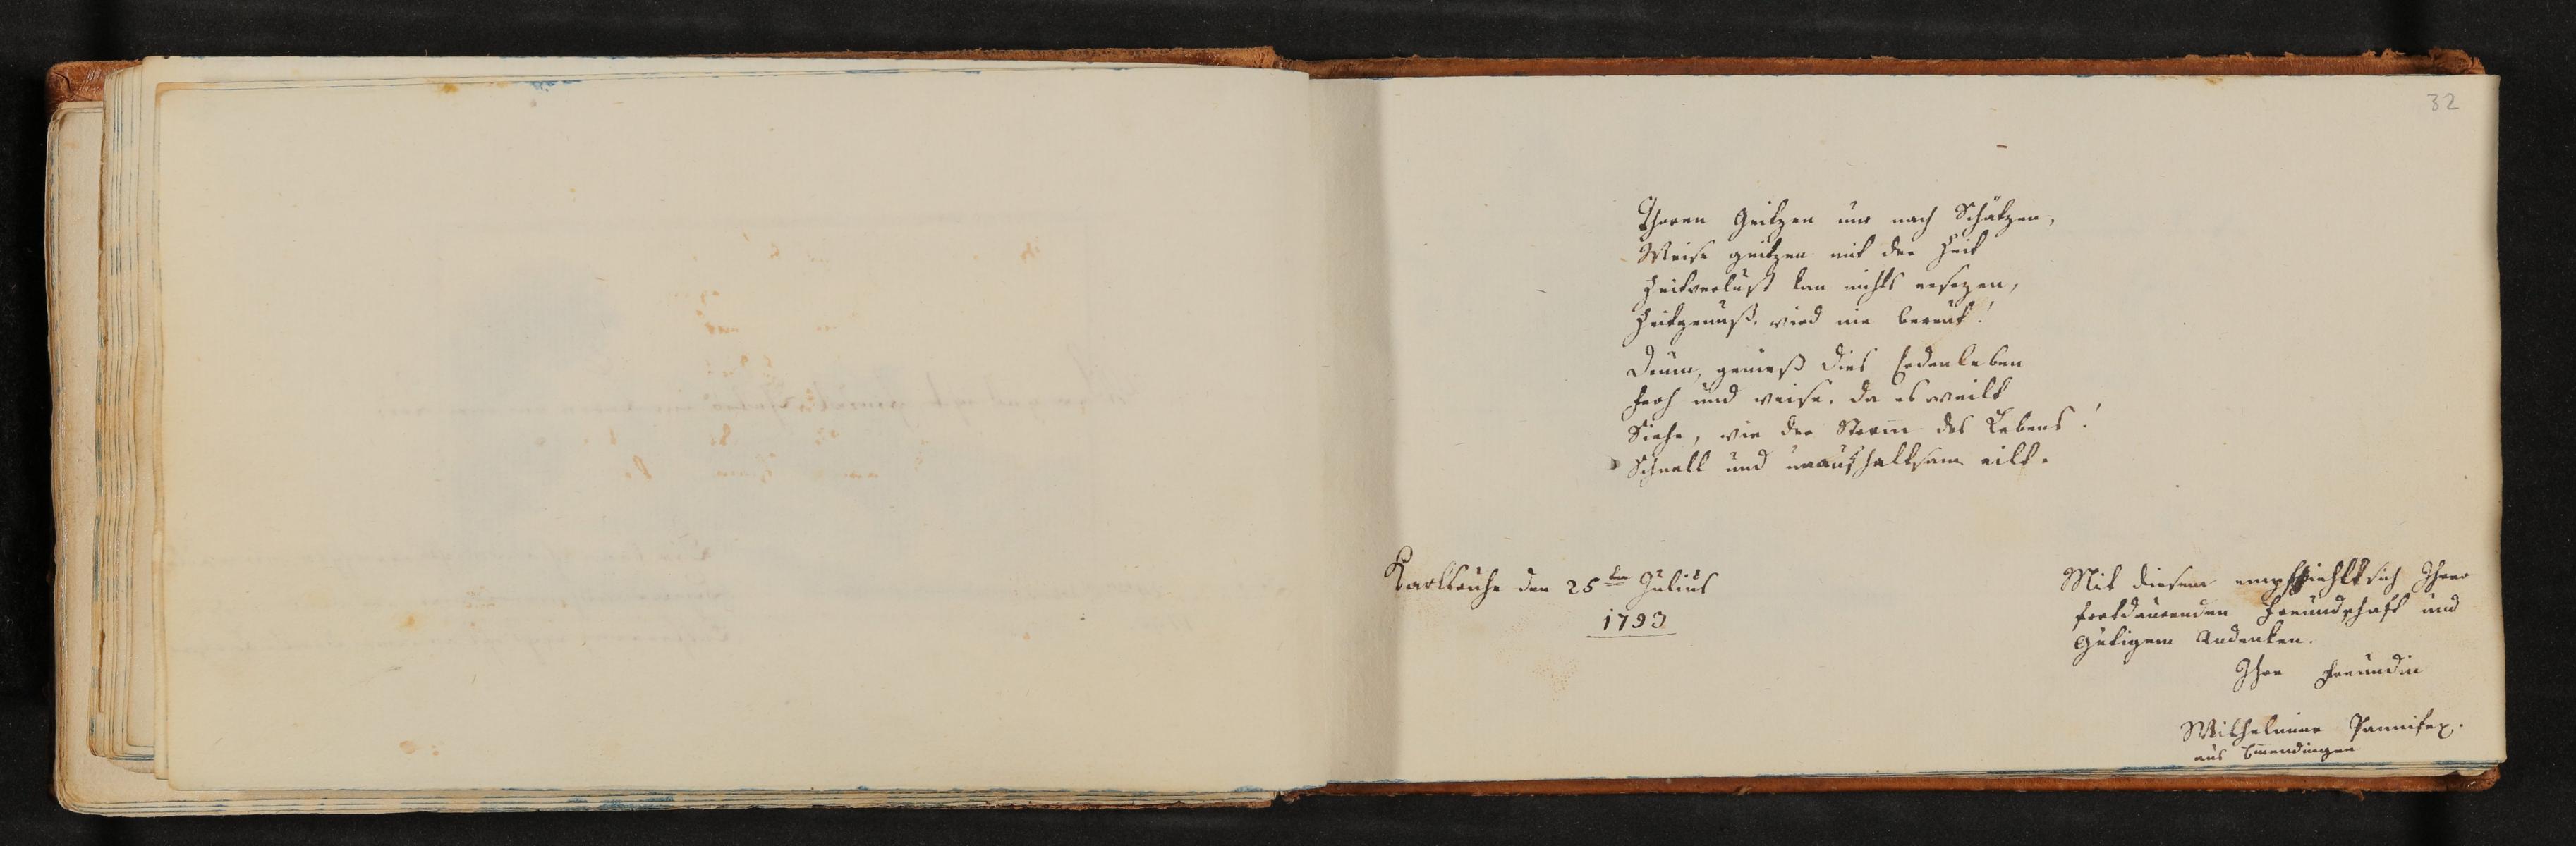 32
Thoren Geitzen nur nach Schätzen,
Weise geitzen mit der Zeit
Zeitverlust kan nichts ersezen,
Zeitgenuß, wird nie bereut!
Drum, genieß dies Erdenleben
froh und weise, da es weilt
Siehe, wie der Strom des Lebens!
Schnell und unaufhaltsam eilt.
Karlsruhe den 25ten Julius
1793
Mit diesem empfhiehlt sich Ihrer
fortdaurenden Freundschaft und
Gütigem Andenken.
Ihre Freundin
Wilhelmine Pannifex.
aus Emendingen